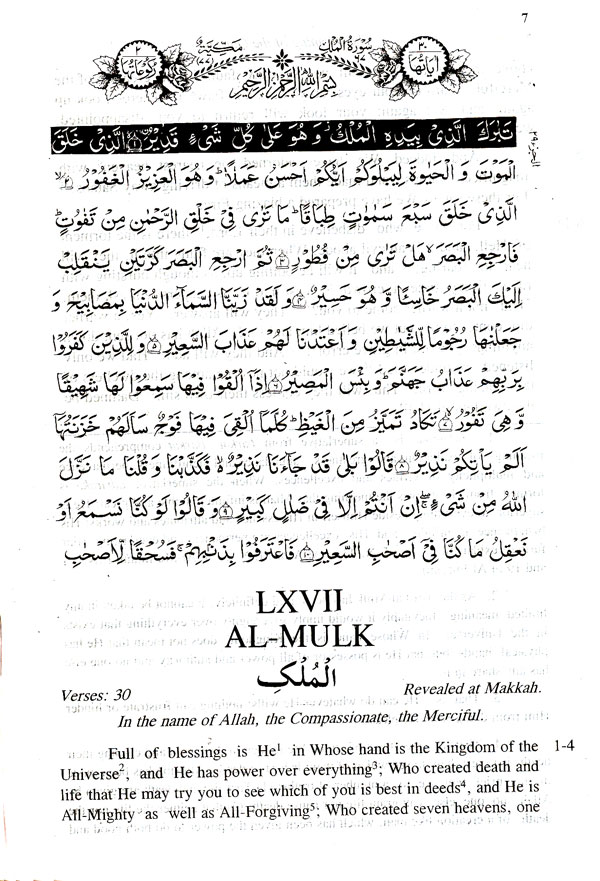 7
٣٠
اٰیَاتُهَا
سُوْرَةُ الْمُلْكِ
مَكِّیَّةٌ
٢
رُكُوْعَاتُهَا
بِسْمِ اللّٰهِ الرَّحْمٰنِ الرَّحِیْمِ
تَبٰرَكَ الَّذِیْ بِیَدِهِ الْمُلْكُ وَ هُوَ عَلٰی كُلِّ شَیْءٍ قَدِیْرُ ۙ﴿١﴾ الَّذِیْ خَلَقَ
الْمَوْتَ وَ الْحَیٰوةَ لِیَبْلُوَكُمْ اَیُّكُمْ اَحْسَنُ عَمَلًا ؕ وَ هُوَ الْعَزِیْزُ الْغَفُوْرُ ۙ﴿٢﴾
الَّذِیْ خَلَقَ سَبْعَ سَمٰوٰتٍ طِبَاقًا ؕ مَا تَرٰی فِیْ خَلْقِ الرَّحْمٰنِ مِنْ تَفٰوُتٍ ؕ
فَارْجِعِ الْبَصَرَ ۙ هَلْ تَرٰی مِنْ فُطُوْرٍ ﴿٣﴾ ثُمَّ ارْجِعِ الْبَصَرَ كَرَّتَیْنِ یَنْقَلِبْ
اِلَیْكَ الْبَصَرُ خَاسِئًا وَّ هُوَ حَسِیْرٌ ﴿٤﴾ وَ لَقَدْ زَیَّنَّا السَّمَآءَ الدُّنْیَا بِمَصَابِیْحَ وَ
جَعَلْنٰهَا رُجُوْمًا لِّلشَّیٰطِیْنِ وَ اَعْتَدْنَا لَهُمْ عَذَابَ السَّعِیْرِ ﴿٥﴾ وَ لِلَّذِیْنَ كَفَرُوْا
بِرَبِّهِمْ عَذَابُ جَهَنَّمَ ؕ وَ بِئْسَ الْمَصِیْرُ ﴿٦﴾ اِذَاۤ اُلْقُوْا فِیْهَا سَمِعُوْا لَهَا شَهِیْقًا
وَّ هِیَ تَفُوْرُ ۙ﴿٧﴾ تَكَادُ تَمَیَّزُ مِنَ الْغَیْظِ ؕ كُلَّمَاۤ اُلْقِیَ فِیْهَا فَوْجٌ سَاَلَهُمْ خَزَنَتُهَاۤ
اَلَمْ یَاْتِكُمْ نَذِیْرٌ ﴿٨﴾ قَالُوْا بَلٰی قَدْ جَآءَنَا نَذِیْرٌ ۙ۬ فَكَذَّبْنَا وَ قُلْنَا مَا نَزَّلَ
اللّٰهُ مِنْ شَیْءٍ ۚۖ اِنْ اَنْتُمْ اِلَّا فِیْ ضَلٰلٍ كَبِیْرٍ ﴿٩﴾ وَ قَالُوْا لَوْ كُنَّا نَسْمَعُ اَوْ
نَعْقِلُ مَا كُنَّا فِیْۤ اَصْحٰبِ السَّعِیْرِ ﴿١٠﴾ فَاعْتَرَفُوْا بِذَنْۢبِهِمْ ۚ فَسُحْقًا لِّاَصْحٰبِ
LXVII
AL-MULK
الْمُلْكِ
Verses: 30 Revealed at Makkah.
In the name of Allah, the Compassionate, the Merciful.
Full of blessings is He¹ in Whose hand is the Kingdom of the 1-4
Universe², and He has power over everything³; Who created death and
life that He may try you to see which of you is best in deeds⁴, and He is
All-Mighty as well as All-Forgiving⁵; Who created seven heavens, one